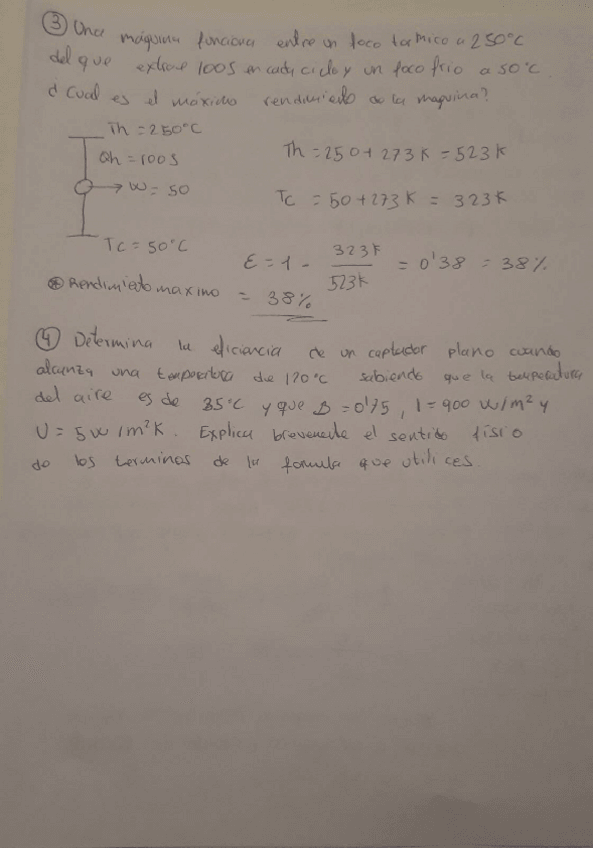 ③ Una máquina funciona entre un foco termico a 250°C
del que extrae 100J en cada ciclo y un foco frio a 50°C.
¿Cual es el máximo rendimiento de la maquina?
Th = 250°C
Qh = 100J
W = 50
Tc = 50°C
Th = 250 + 273 K = 523 K
Tc = 50 + 273 K = 323 K
ε = 1 - 323K / 523K = 0'38 = 38%
⊛ Rendimiento maximo = 38%
④ Determina la eficiencia de un captador plano cuando
alcanza una temperatura de 120°C sabiendo que la temperatura
del aire es de 35°C y que B = 0'75, I = 900 W/m² y
U = 5 W/m²K. Explica brevemente el sentido fisio
de los terminos de la formula que utilices.